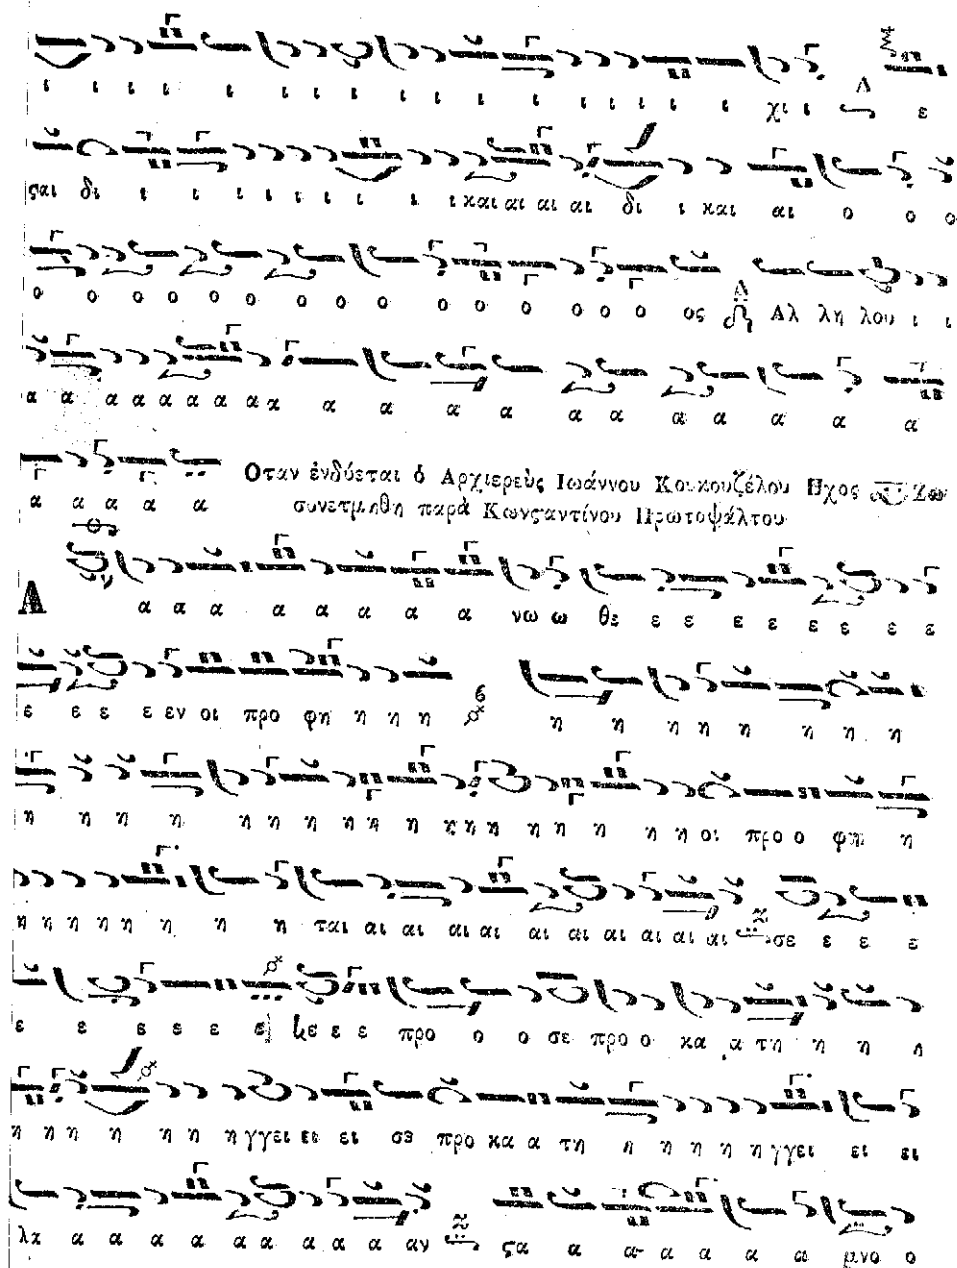 ι ι ι ι ι ι ι ι ι ι ι ι ι ι ι ι ι χι ι ε
ςαι δι ι ι ι ι ι ι ι ι ι και αι αι αι δι ι και αι ο ο ο
ο ο ο ο ο ο ο ο ο ο ο ο ο ο ο ος Αλ λη λου ι ι
α α α α α α α α α α α α α α α α α α α
α α α α α Οταν ἐνδύεται ὁ Αρχιερεὺς Ιωάννου Κουκουζέλου Ηχος Ζω
συνετμηθη παρὰ Κωνςαντίνου Πρωτοψάλτου
Α α α α α α α α α νω ω θε ε ε ε ε ε ε ε ε
ε ε ε ε εν οι προ φη η η η η η η η η η η η
η η η η η η η η η η η η η η η η η η οι προ ο φη η
η η η η η η η η ται αι αι αι αι αι αι αι αι αι αι σε ε ε ε
ε ε ε ε ε ε ε ε ε προ ο ο σε προ ο κα α τη η η η
η η η η η η η γγει ει ει σε προ κα α τη η η η η η γγει ει ει
λα α α α α α α α α α αν ςα α α α α α α μνο ο